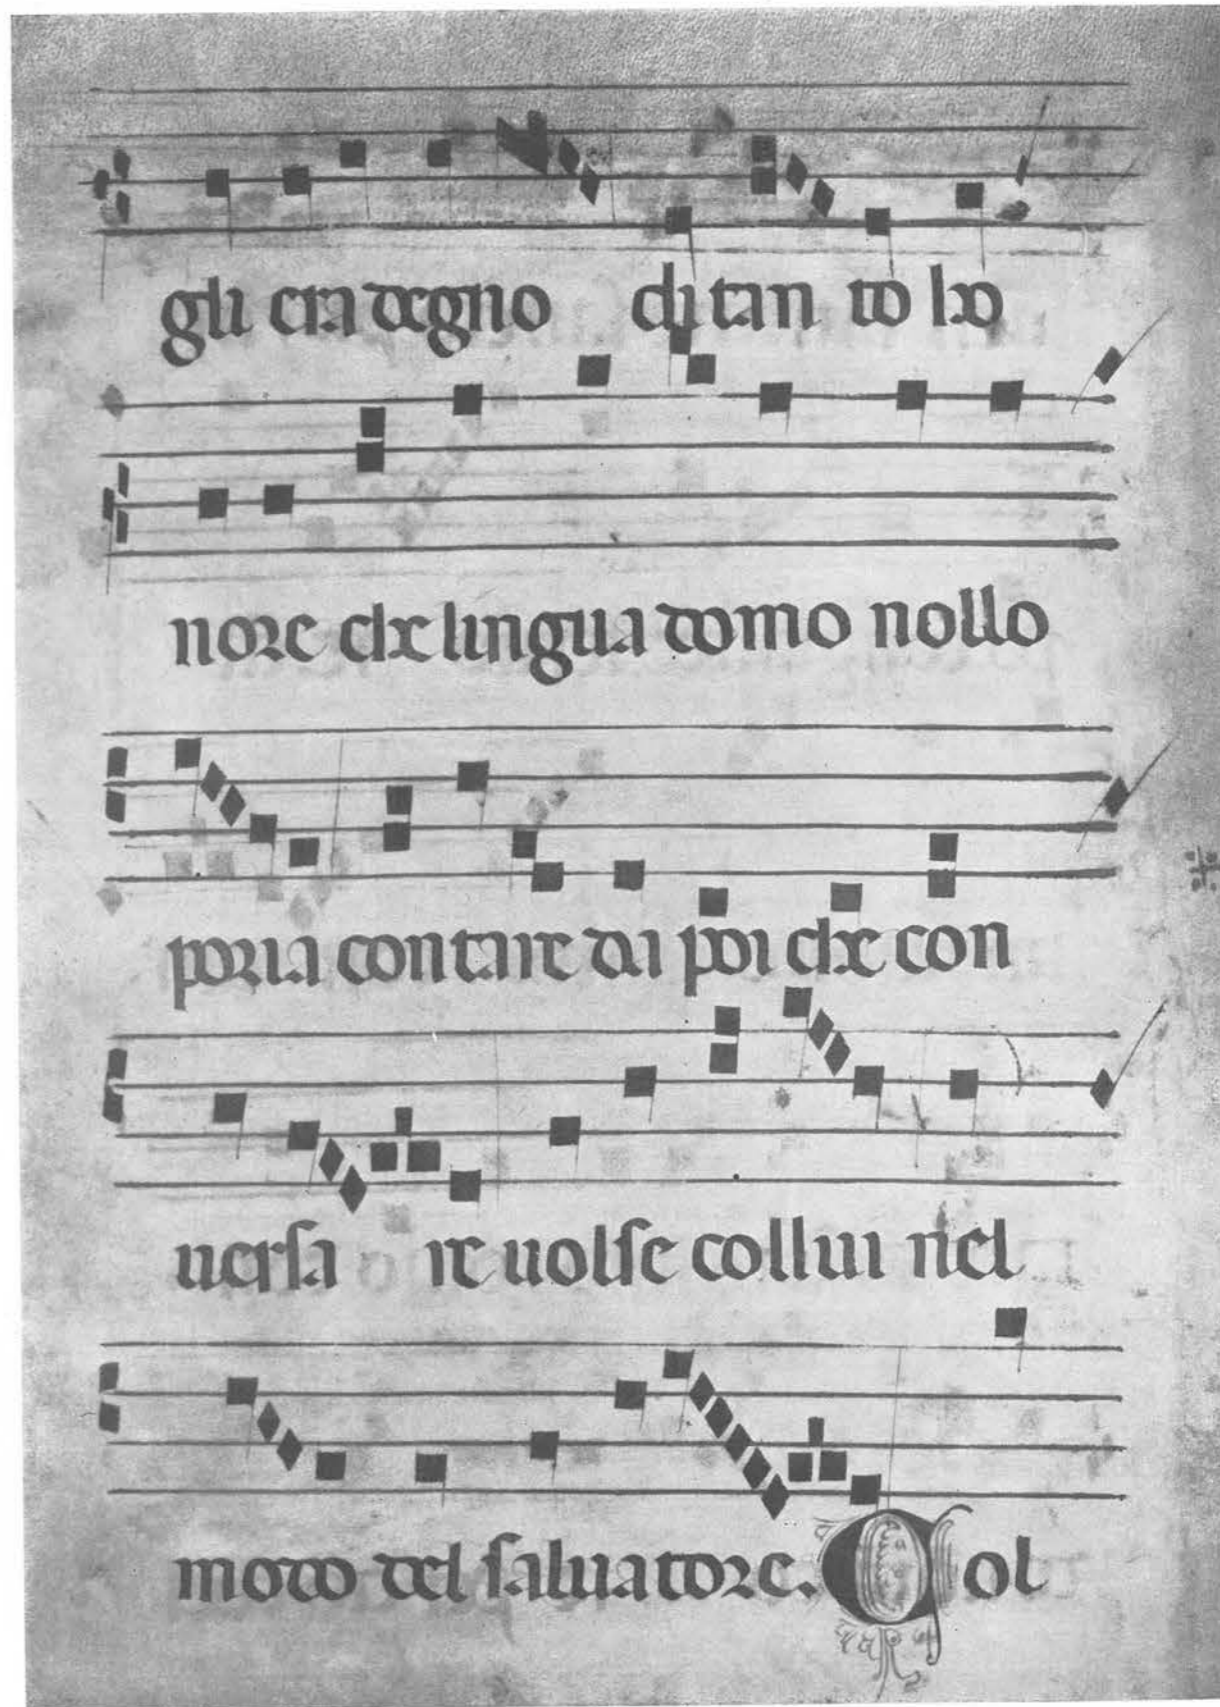 gli era degno di tan to ho
nore che lingua domo nollo
poria contare da poi che con
uersa re uolse collui nel
mondo del saluatore. Col